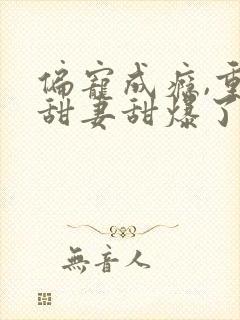 偏寵成癮,重
甜妻甜爆了
無音人